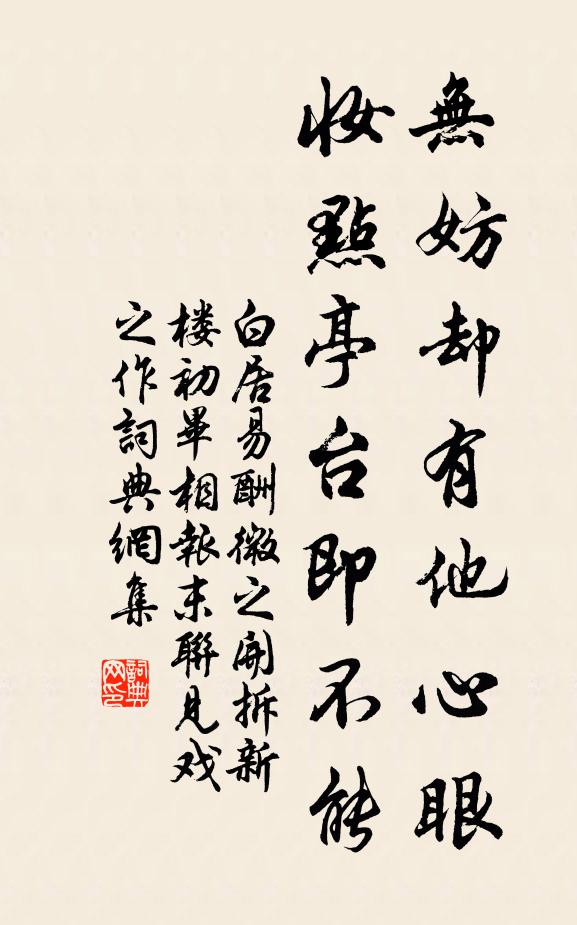 無妨却有他心眼
妆點亭台即不能
白居易酬微之開拆新
楼初畢相報末聯見戏
之作詞典網集
詞典
网印